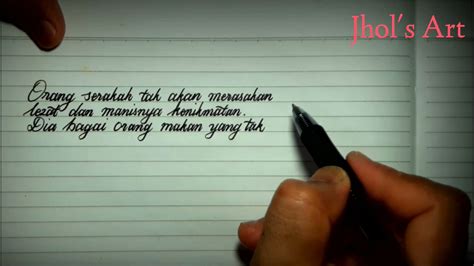 Jhol's Art
Orang serakah tak akan merasakan
lezat dan manisnya kenikmatan.
Dia bagai orang makan yang tak